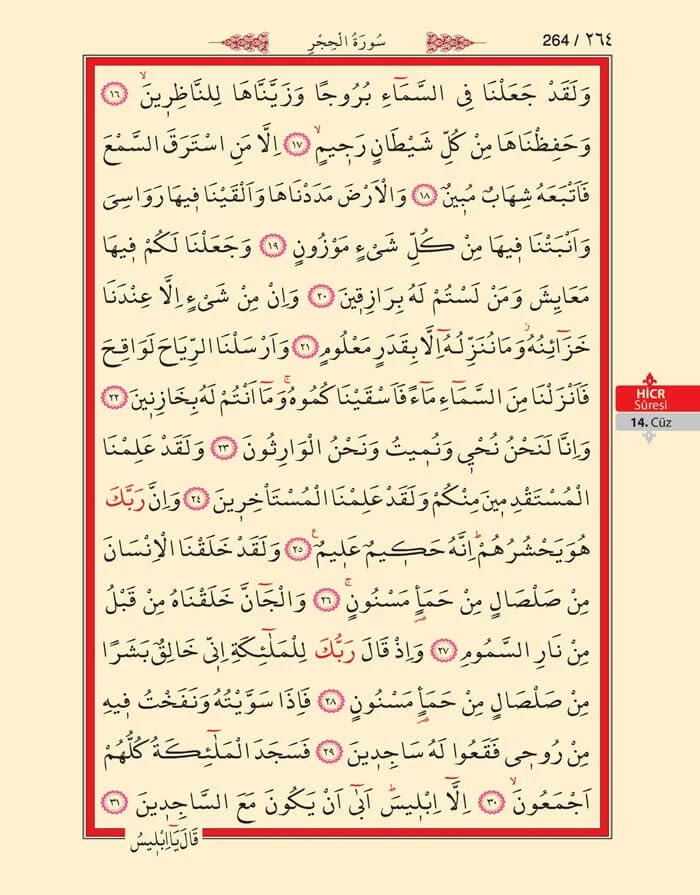 سُورَةُ الْحِجْرِ
264 / ٢٦٤
وَلَقَدْ جَعَلْنَا فِي السَّمَٓاءِ بُرُوجًا وَزَيَّنَّاهَا لِلنَّاظِر۪ينَۙ ١٦
وَحَفِظْنَاهَا مِنْ كُلِّ شَيْطَانٍ رَج۪يمٍۙ ١٧ اِلَّا مَنِ اسْتَرَقَ السَّمْعَ
فَاَتْبَعَهُ شِهَابٌ مُب۪ينٌ ١٨ وَالْاَرْضَ مَدَدْنَاهَا وَاَلْقَيْنَا ف۪يهَا رَوَاسِيَ
وَاَنْبَتْنَا ف۪يهَا مِنْ كُلِّ شَيْءٍ مَوْزُونٍ ١٩ وَجَعَلْنَا لَكُمْ ف۪يهَا
مَعَايِشَ وَمَنْ لَسْتُمْ لَهُ بِرَازِق۪ينَ ٢٠ وَاِنْ مِنْ شَيْءٍ اِلَّا عِنْدَنَا
خَزَٓائِنُهُۘ وَمَا نُنَزِّلُهُٓ اِلَّا بِقَدَرٍ مَعْلُومٍ ٢١ وَاَرْسَلْنَا الرِّيَاحَ لَوَاقِحَ
فَاَنْزَلْنَا مِنَ السَّمَٓاءِ مَٓاءً فَاَسْقَيْنَاكُمُوهُۚ وَمَٓا اَنْتُمْ لَهُ بِخَازِن۪ينَ ٢٢
وَاِنَّا لَنَحْنُ نُحْي۪ وَنُم۪يتُ وَنَحْنُ الْوَارِثُونَ ٢٣ وَلَقَدْ عَلِمْنَا
الْمُسْتَقْدِم۪ينَ مِنْكُمْ وَلَقَدْ عَلِمْنَا الْمُسْتَأْخِر۪ينَ ٢٤ وَاِنَّ رَبَّكَ
هُوَ يَحْشُرُهُمْۜ اِنَّهُ حَك۪يمٌ عَل۪يمٌ۟ ٢٥ وَلَقَدْ خَلَقْنَا الْاِنْسَانَ
مِنْ صَلْصَالٍ مِنْ حَمَأٍ مَسْنُونٍۚ ٢٦ وَالْجَٓانَّ خَلَقْنَاهُ مِنْ قَبْلُ
مِنْ نَارِ السَّمُومِ ٢٧ وَاِذْ قَالَ رَبُّكَ لِلْمَلٰٓئِكَةِ اِنّ۪ي خَالِقٌ بَشَرًا
مِنْ صَلْصَالٍ مِنْ حَمَأٍ مَسْنُونٍ ٢٨ فَاِذَا سَوَّيْتُهُ وَنَفَخْتُ ف۪يهِ
مِنْ رُوح۪ي فَقَعُوا لَهُ سَاجِد۪ينَ ٢٩ فَسَجَدَ الْمَلٰٓئِكَةُ كُلُّهُمْ
اَجْمَعُونَۙ ٣٠ اِلَّٓا اِبْل۪يسَۜ اَبٰٓى اَنْ يَكُونَ مَعَ السَّاجِد۪ينَ ٣١
قَالَ يَٓا اِبْل۪يسُ
HİCR
Sûresi
14. Cüz